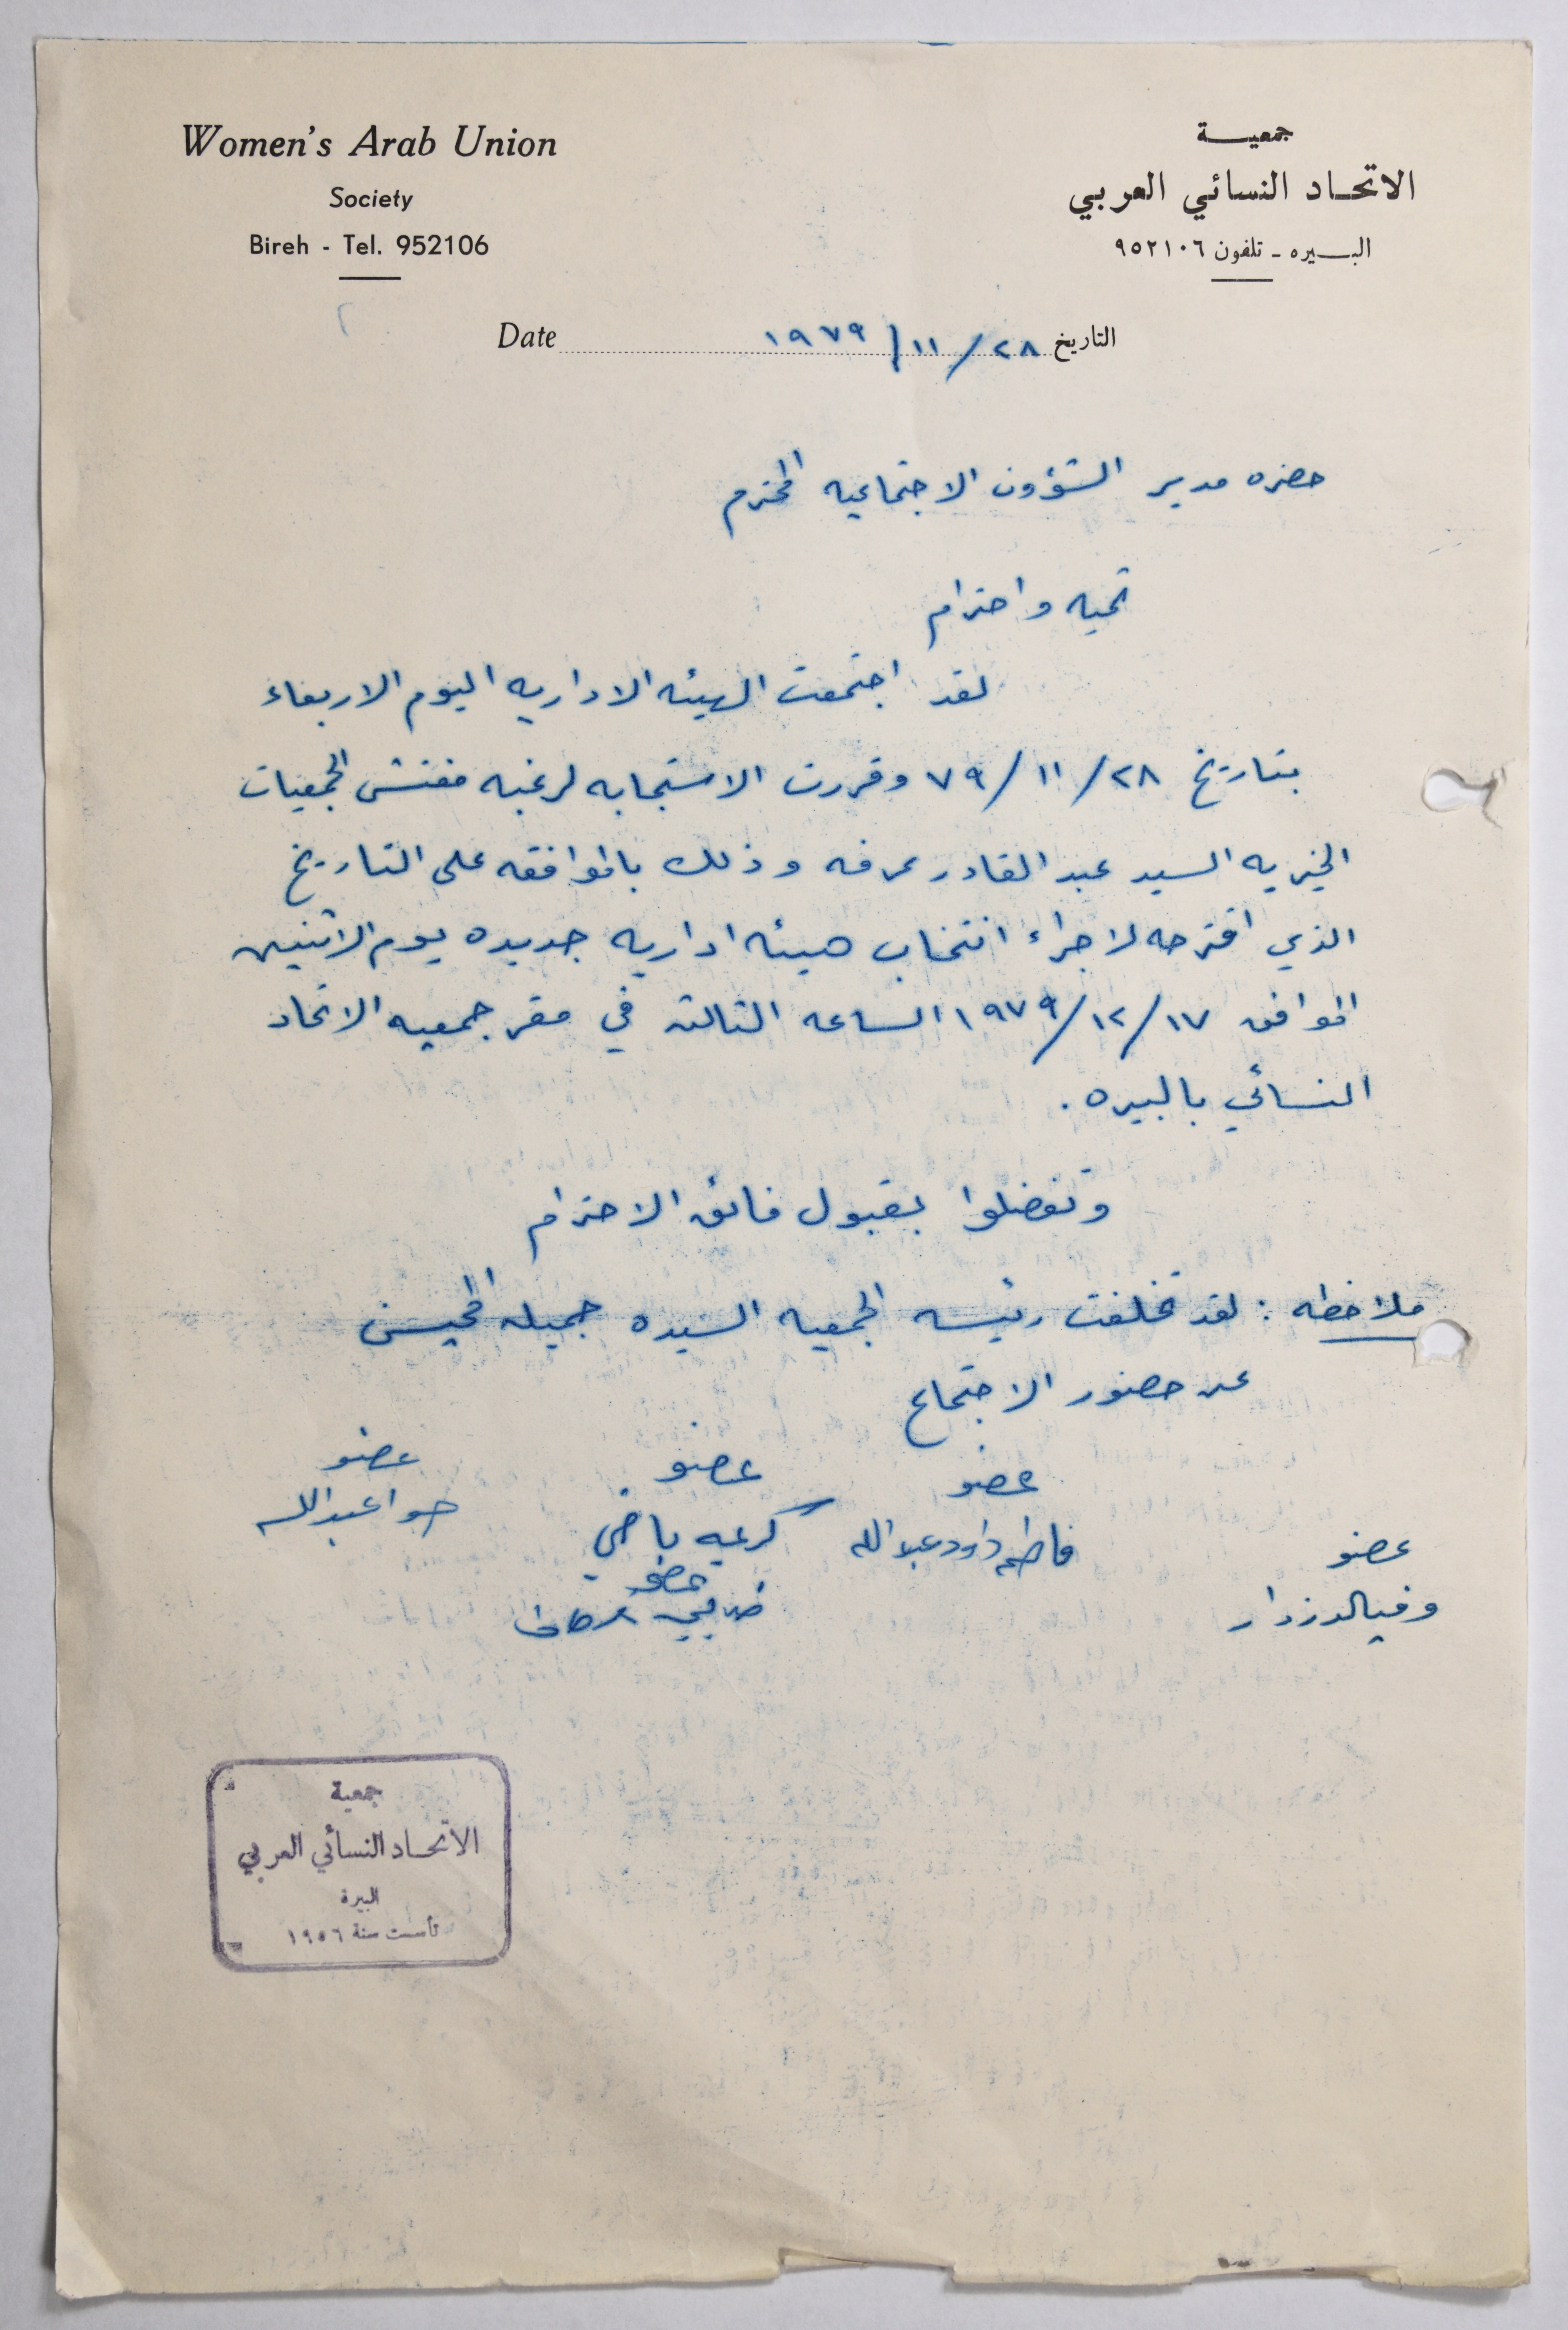 Women's Arab Union
Society
Bireh - Tel. 952106
جمعيـــة
الاتحـاد النسائي العربي
البـــيره ـ تلفون ٩٥٢١٠٦
Date التاريخ ٢٨ / ١١ / ١٩٧٩
حضره مدير الشؤون الاجتماعيه المحترم
تحيه واحترام
لقد اجتمعت الهيئه الاداريه اليوم الاربعاء
بتاريخ ٢٨ / ١١ / ٧٩ وقررت الاستجابه لرغبه مفتش الجمعيات
الخيريه السيد عبد القادر عرفه وذلك بالموافقه على التاريخ
الذي اقترحه لاجراء انتخاب هيئه اداريه جديده يوم الاثنين
الموافق ١٧ / ١٢ / ١٩٧٩ الساعه الثالثه في مقر جمعيه الاتحاد
النسائي بالبيره .
وتفضلوا بقبول فائق الاحترام
ملاحظه : لقد تخلفت رئيسه الجمعيه السيده جميله
عن حضور الاجتماع
عضو عضو عضو
فاطمه داود عبدالله كريمه حوا عبدالله
عضو عضو
جمعية
الاتحـاد النسائي العربي
البيرة
تأسست سنة ١٩٥٦